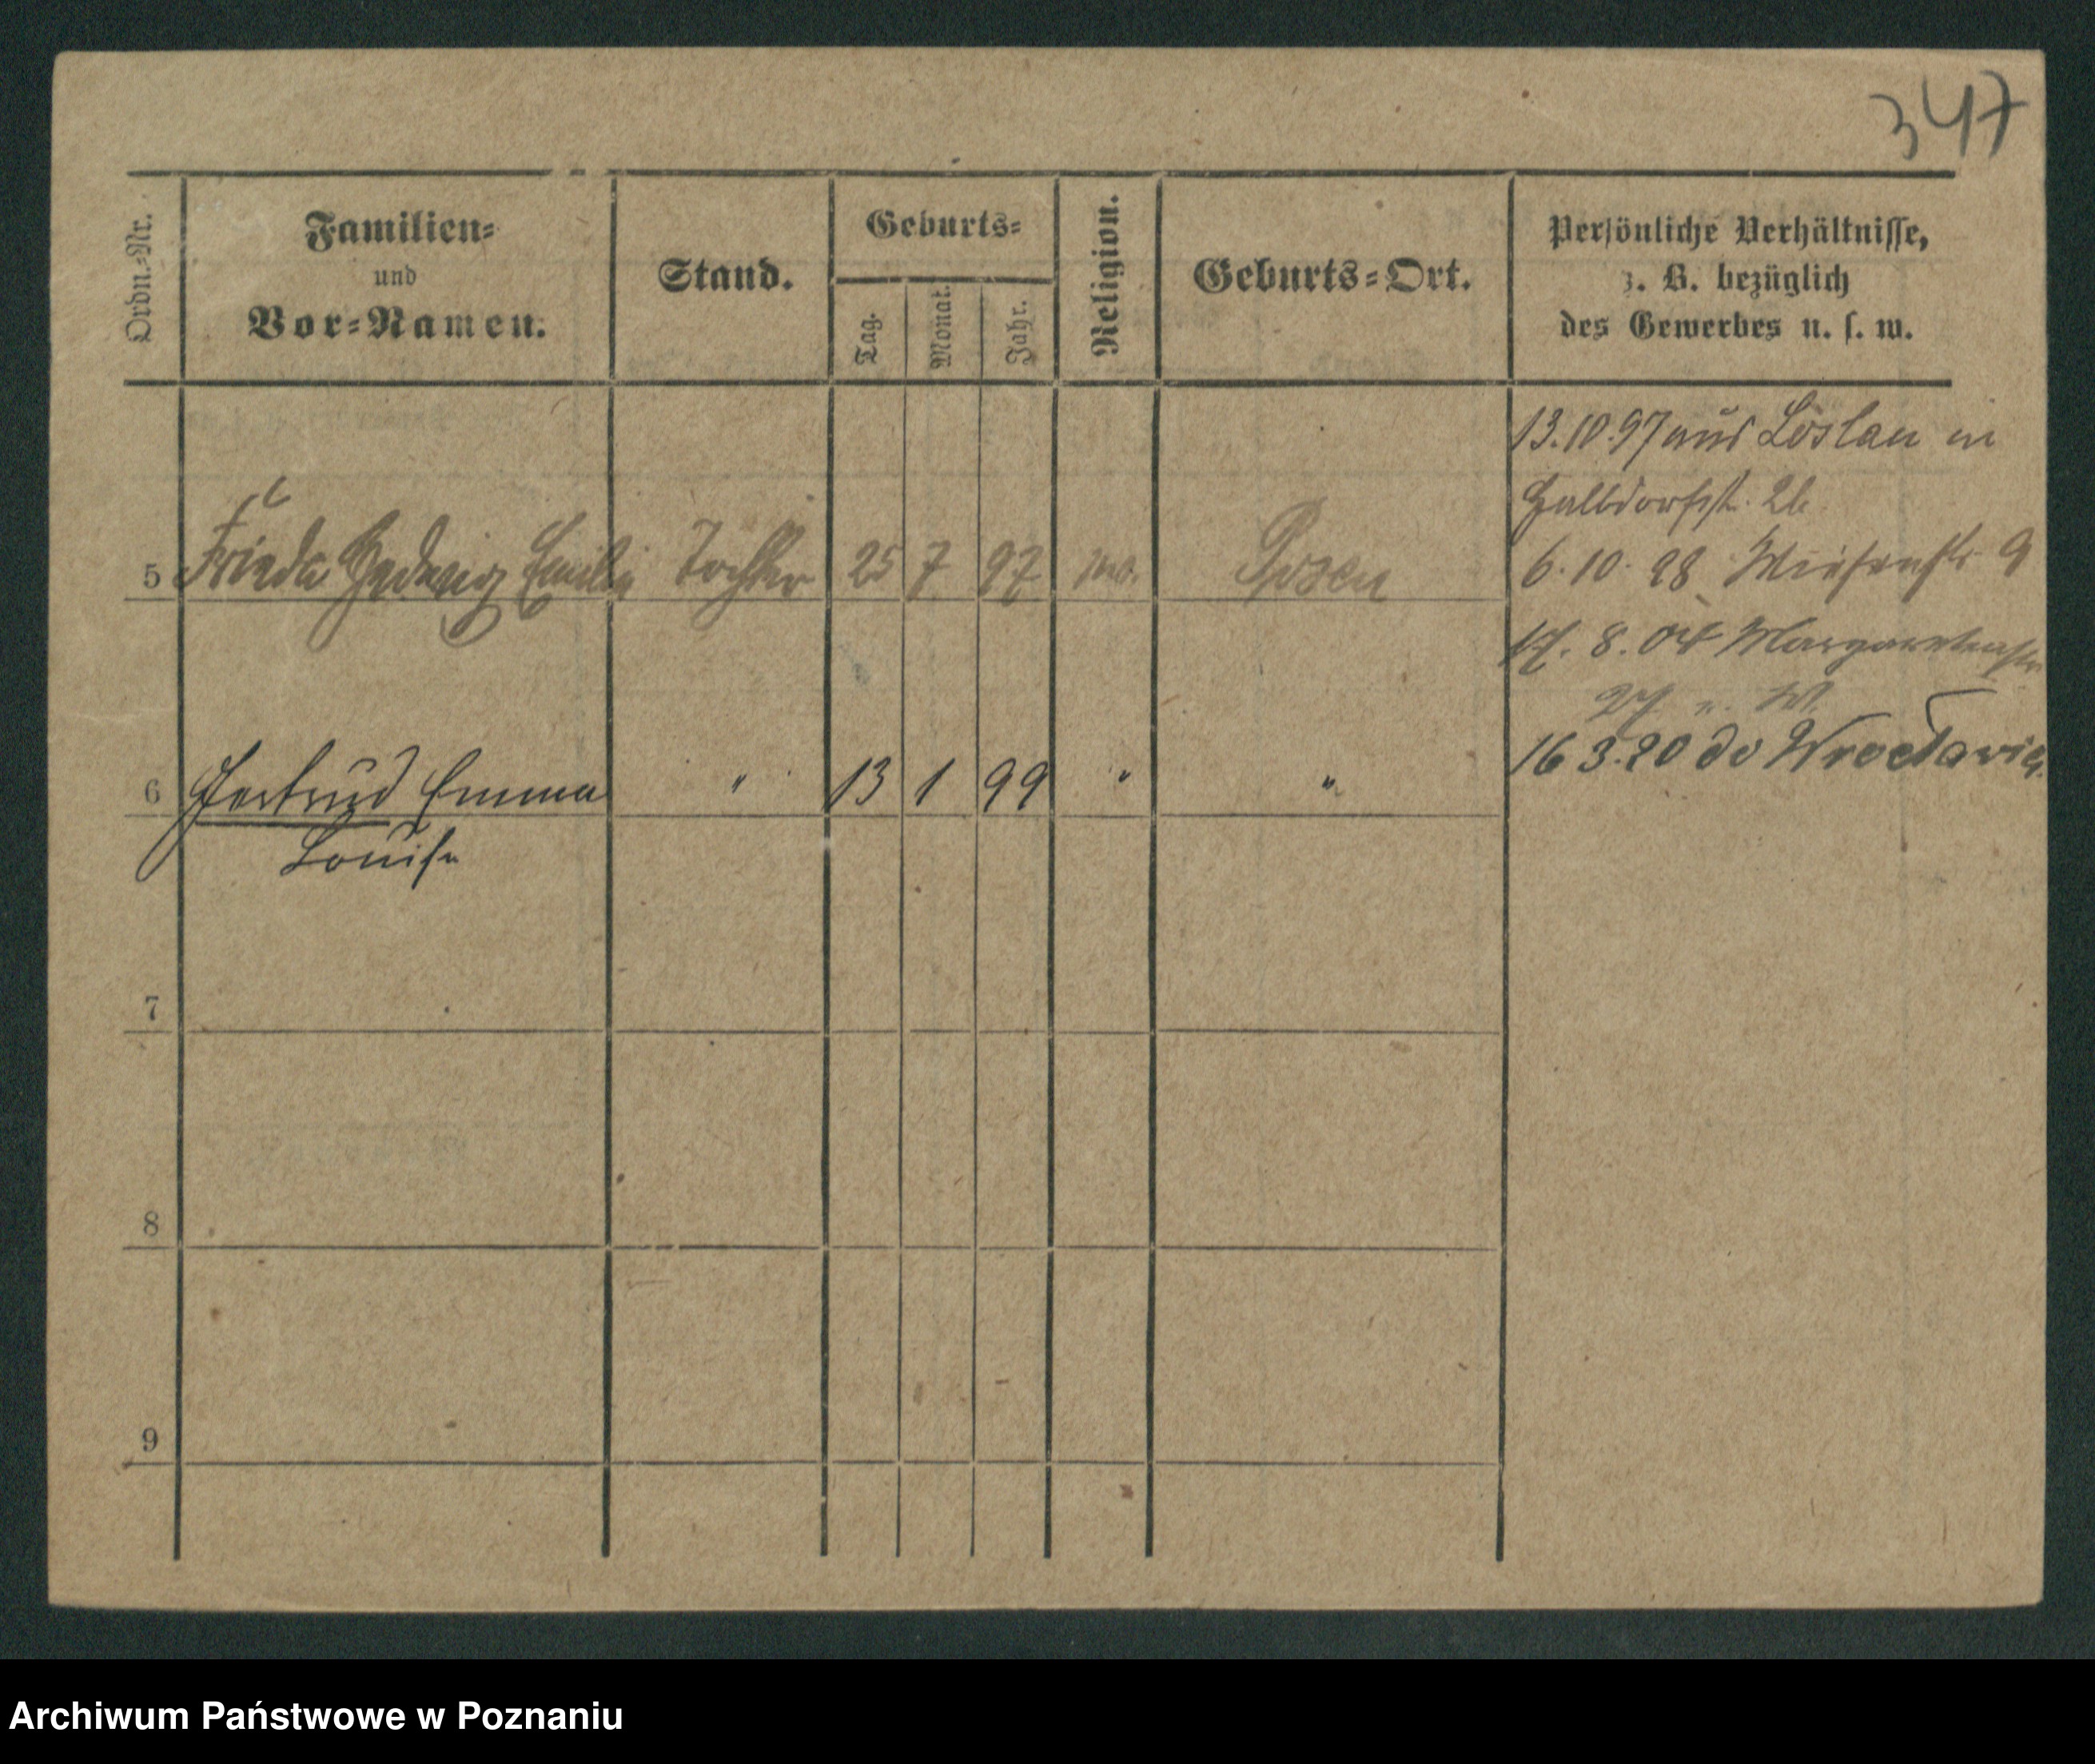 347
Ordn.-Nr.
Familien-
und
Vor-Namen.
Stand.
Geburts-
Tag.
Monat.
Jahr.
Religion.
Geburts-Ort.
Persönliche Verhältnisse,
z. B. bezüglich
des Gewerbes u. s. w.
13.10.97 aus Löslau in
Halbdorfst. 26
5 Frieda Hedwig Emilie Tochter 25 7 97 Posen
6.10.98 Wiesenstr 9
17. 8. 04 Margarethenstr
27
16 3.20 do Wrocławia
6 Gertrud Emma " 13 1 99 " "
Louise
7
8
9
Archiwum Państwowe w Poznaniu